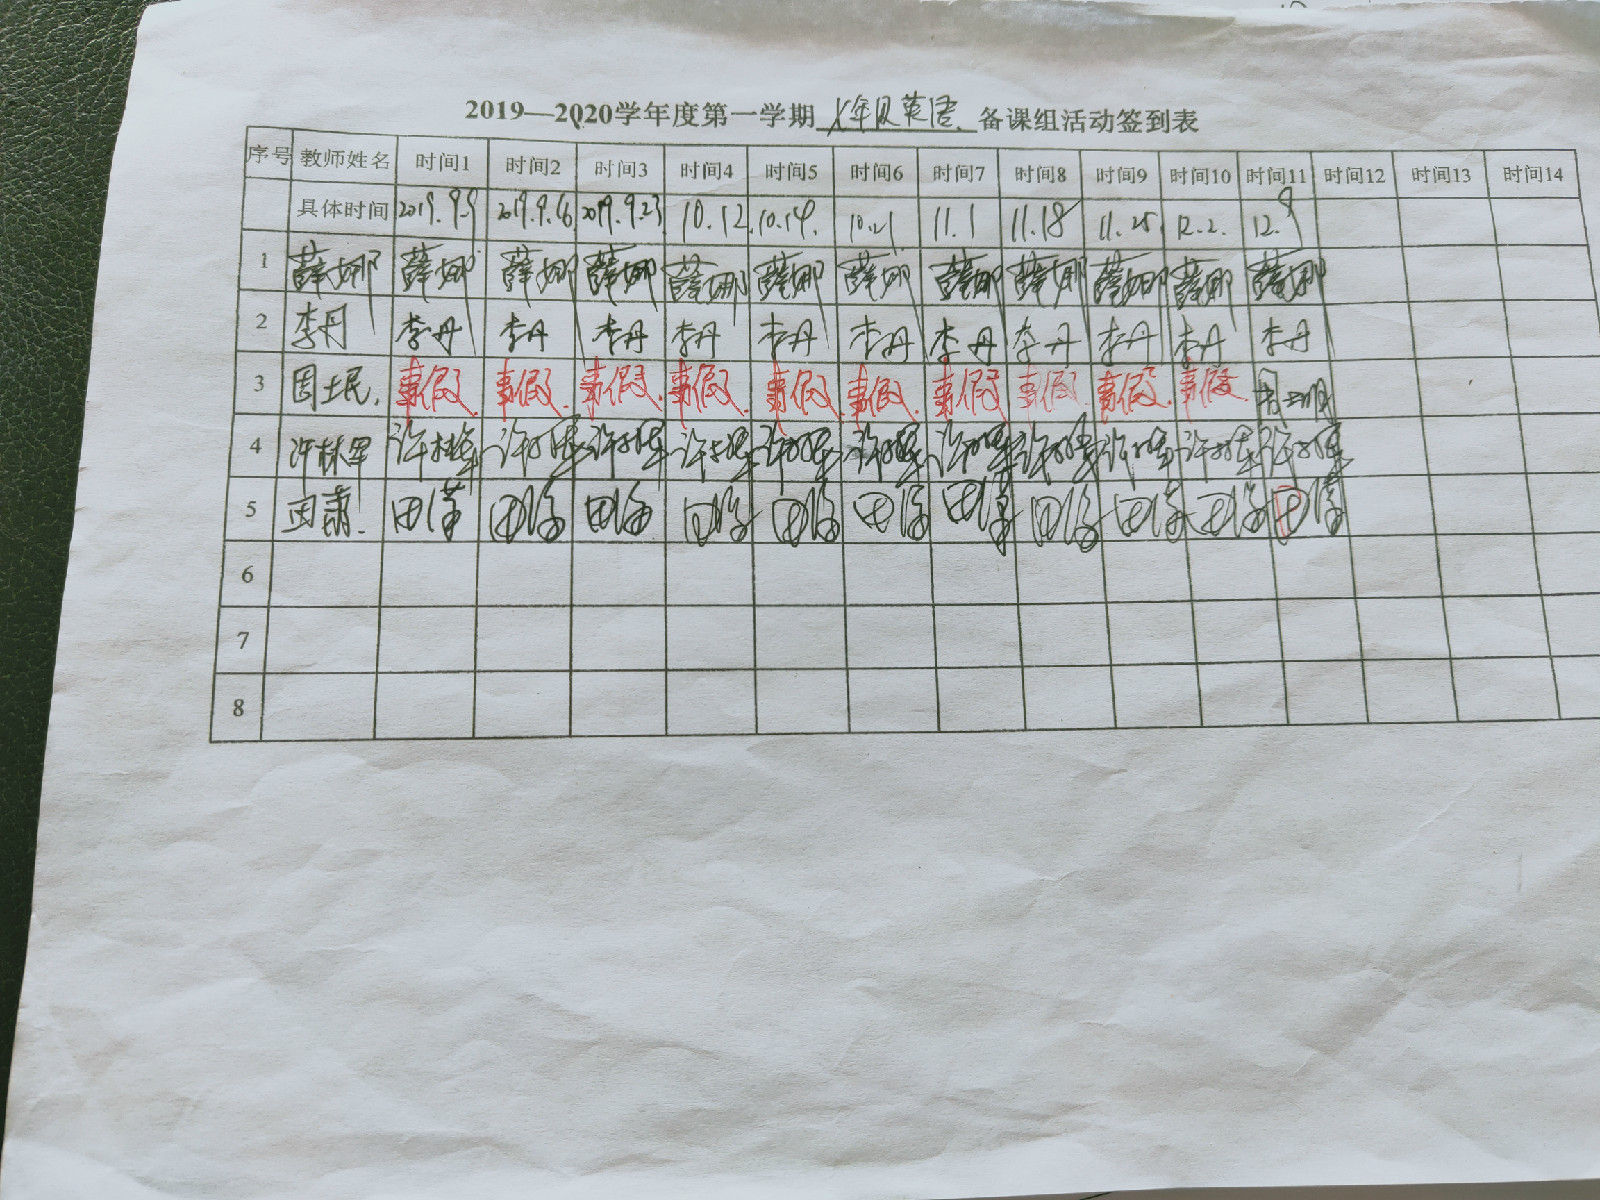 2019—2020学年度第一学期 七年级英语 备课组活动签到表
序号 教师姓名 时间1 时间2 时间3 时间4 时间5 时间6 时间7 时间8 时间9 时间10 时间11 时间12 时间13 时间14
具体时间 2019.9.9 2019.9.16 2019.9.23 10.12 10.14. 10.21 11.1 11.18 11.25 12.2. 12.9
1 薛娜 薛娜 薛娜 薛娜 薛娜 薛娜 薛娜 薛娜 薛娜 薛娜 薛娜 薛娜
2 李丹 李丹 李丹 李丹 李丹 李丹 李丹 李丹 李丹 李丹 李丹 李丹
3 事假. 事假. 事假. 事假. 事假. 事假. 事假. 事假. 事假. 事假.
4 许林军 许林军 许林军 许林军 许林军 许林军 许林军 许林军 许林军 许林军 许林军 许林军
5 田
6
7
8